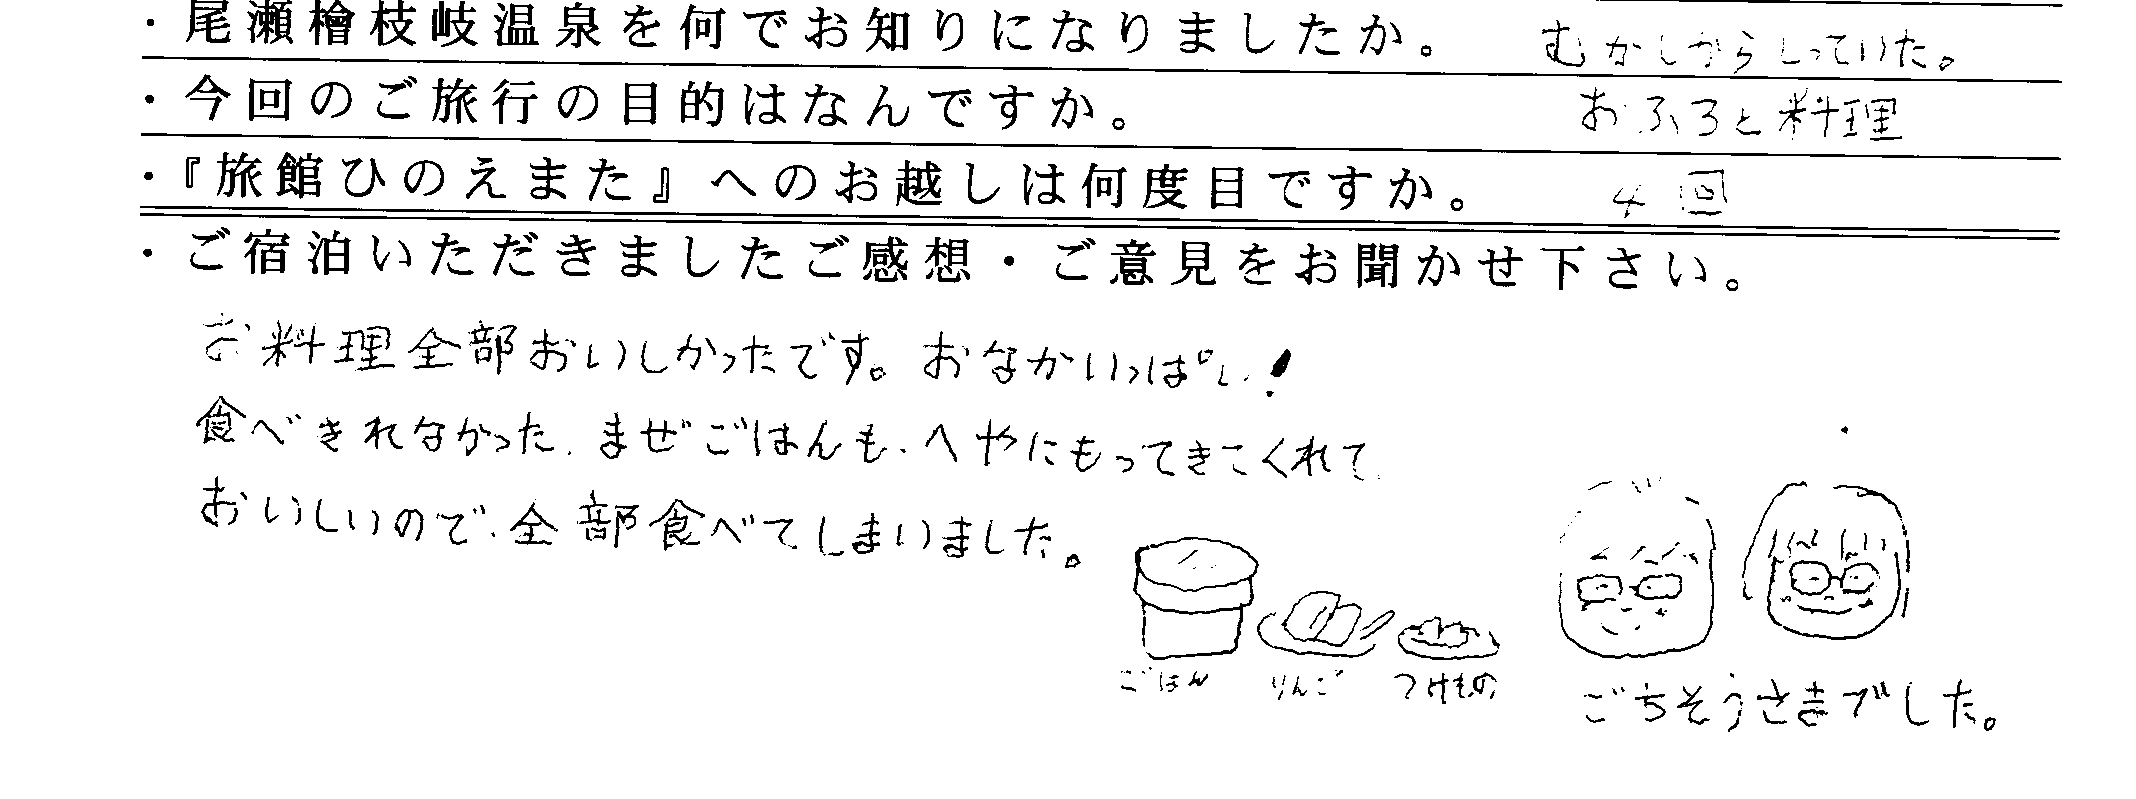 ・尾瀬檜枝岐温泉を何でお知りになりましたか。 むかしからしっていた。
・今回のご旅行の目的はなんですか。 おふろと料理
・『旅館ひのえまた』へのお越しは何度目ですか。 4回
・ご宿泊いただきましたご感想・ご意見をお聞かせ下さい。
お料理全部おいしかったです。おなかいっぱい!
食べきれなかった、まぜごはんも、へやにもってきてくれて
おいしいので、全部食べてしまいました。
ごはん りんご つけもの
ごちそうさまでした。